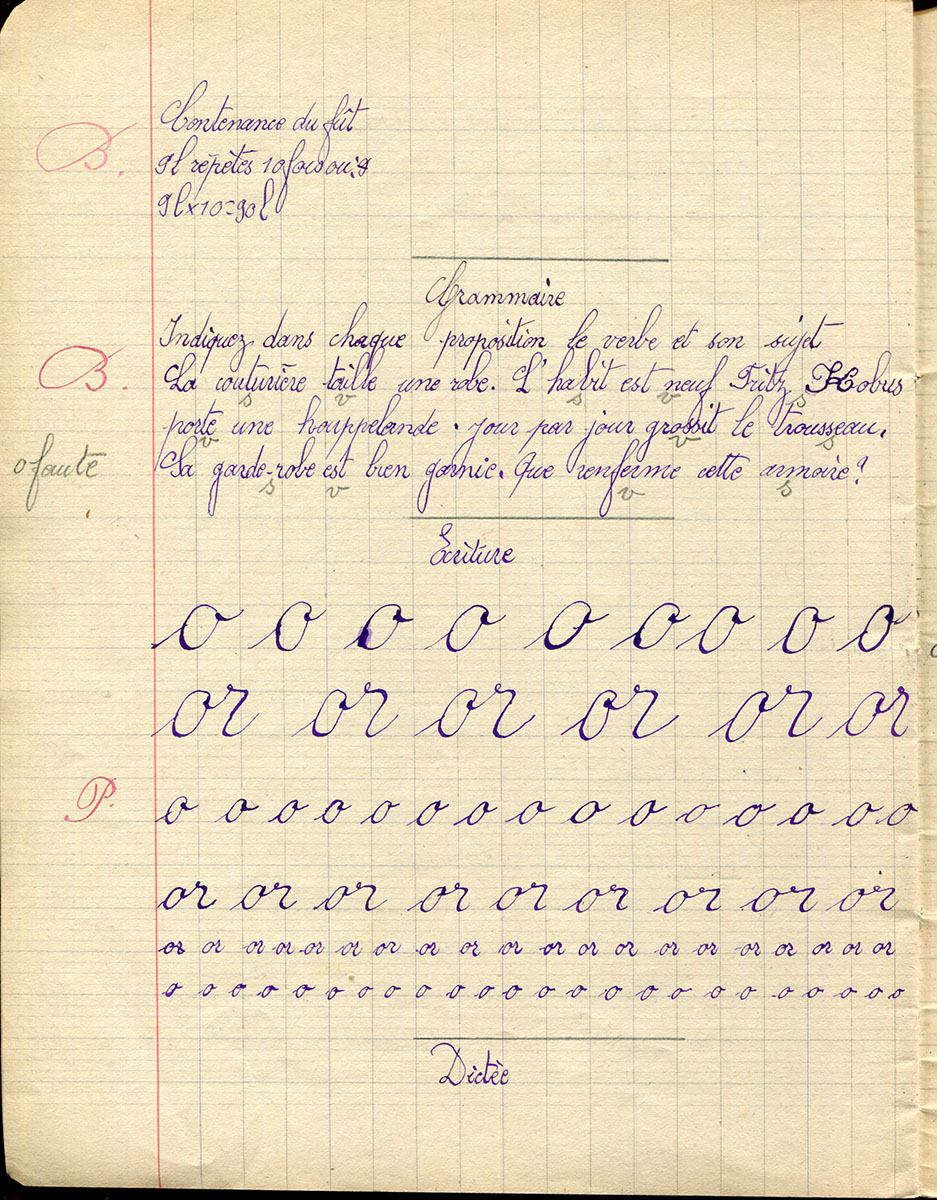 Contenance du fût
B.
9l répétes 10 fois ou:
9l×10=90l
Grammaire
Indiquez dans chaque proposition le verbe et son sujet
B. La couturière taille une robe. L'habit est neuf Fritz Kobus
s v s v s
porte une houppelande. jour par jour grossit le trousseau.
v v s
0 faute
Sa garde-robe est bien garnie. Que renferme cette armoire?
s v v s
Ecriture
o o o o o o o o o
or or or or or or
P. o o o o o o o o o o o o o o
or or or or or or or or or
or or or or or or or or or or or or or or or or or or or or
o o o o o o o o o o o o o o o o o o o o o o o o
Dictée